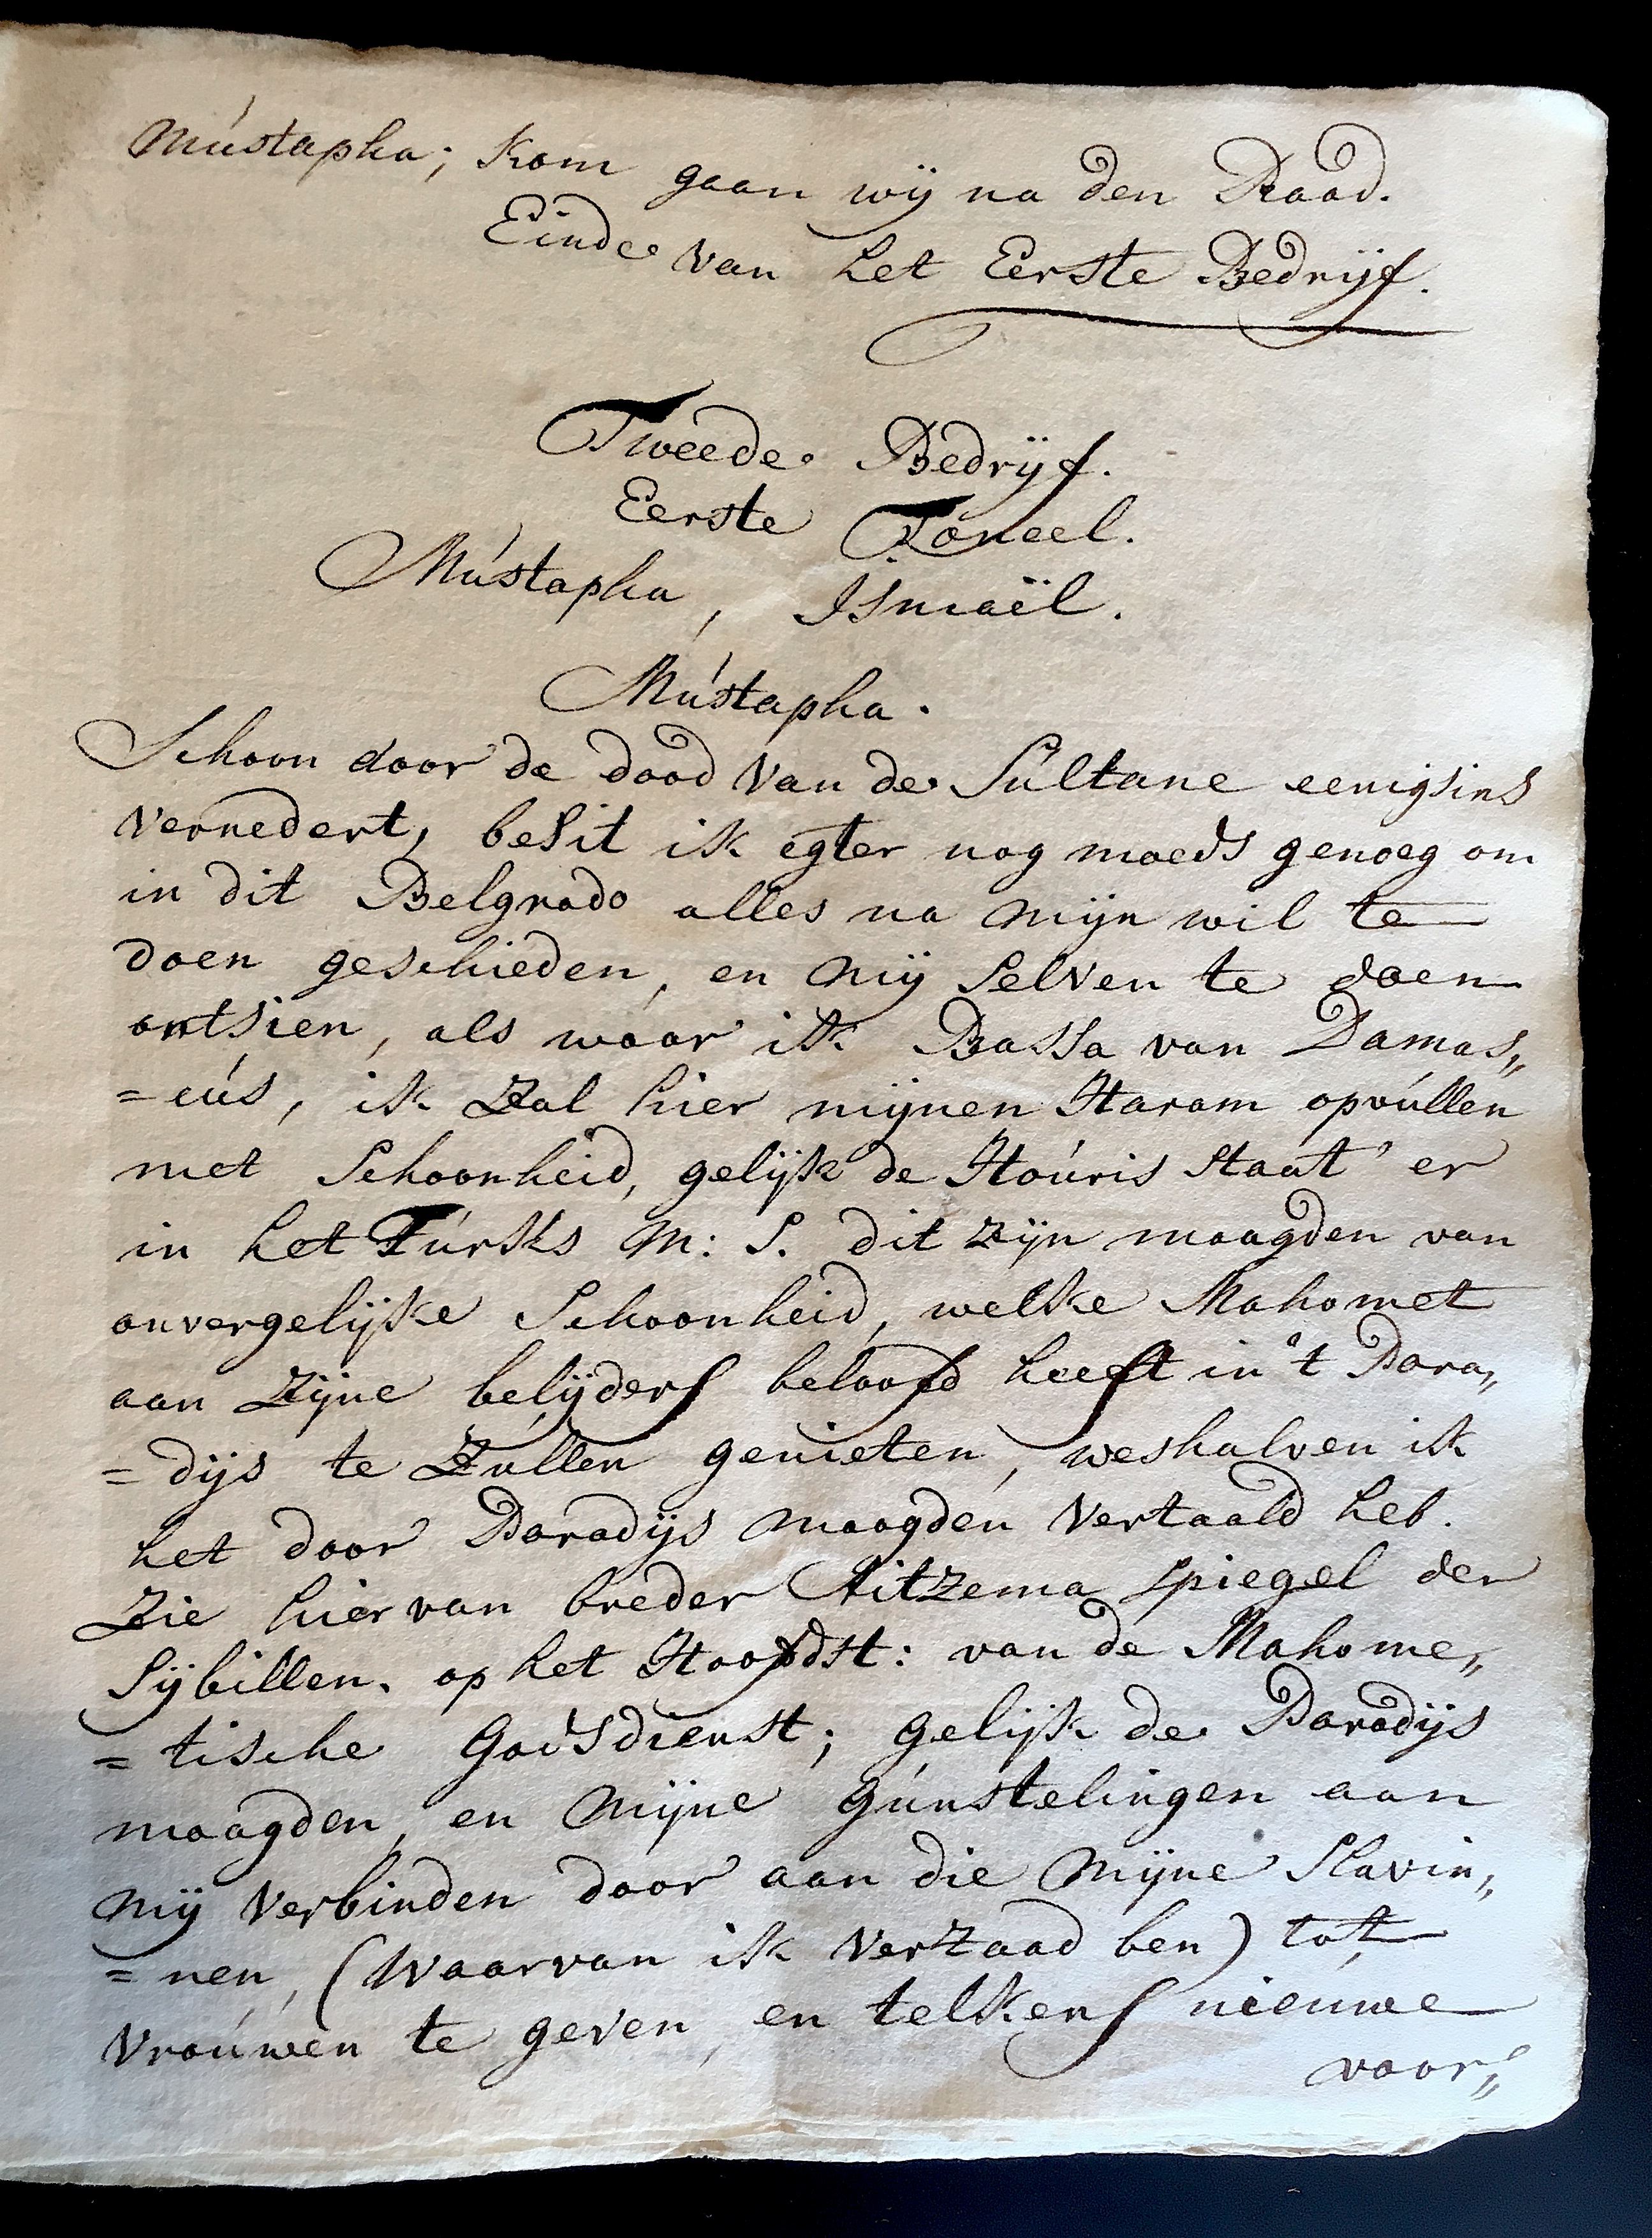 Mústapha; Kom gaan wij na den Raad.
Einde van het Eerste Bedrijf.
Tweede Bedrijf.
Eerste Toneel.
Mústapha, Ismaël.
Mústapha.
Schoon door de dood van de Sultane eenigsins
vernedert, besit ik egter nog moeds genoeg om
in dit Belgrado alles na mijn wil te
doen geschieden, en mij selven te doen
ontsien, als waar ik Bassa van Damas„
=cús, ik zal hier mijnen Haram opvúllen
met Schoonheid, gelijk de Hoúris staat er
in het Túrks M: S. dit zijn maagden van
onvergelijke Schoonheid, welke Mahomet
aan zijne belijders beloofd heeft in 't Para„
=dijs te zúllen genieten, weshalven ik
het door Paradijs maagden vertaald heb.
Zie hier van breder Aitzema spiegel der
Sijbillen. op het Hoofdst: van de Mahome„
=tische Godsdienst; gelijk de Paradijs
maagden, en mijne gúnstelingen aan
mij verbinden door aan die mijne Slavin„
=nen, (waarvan ik verzaad ben) tot
vroúwen te geven, en telkens nieúwe
voor„